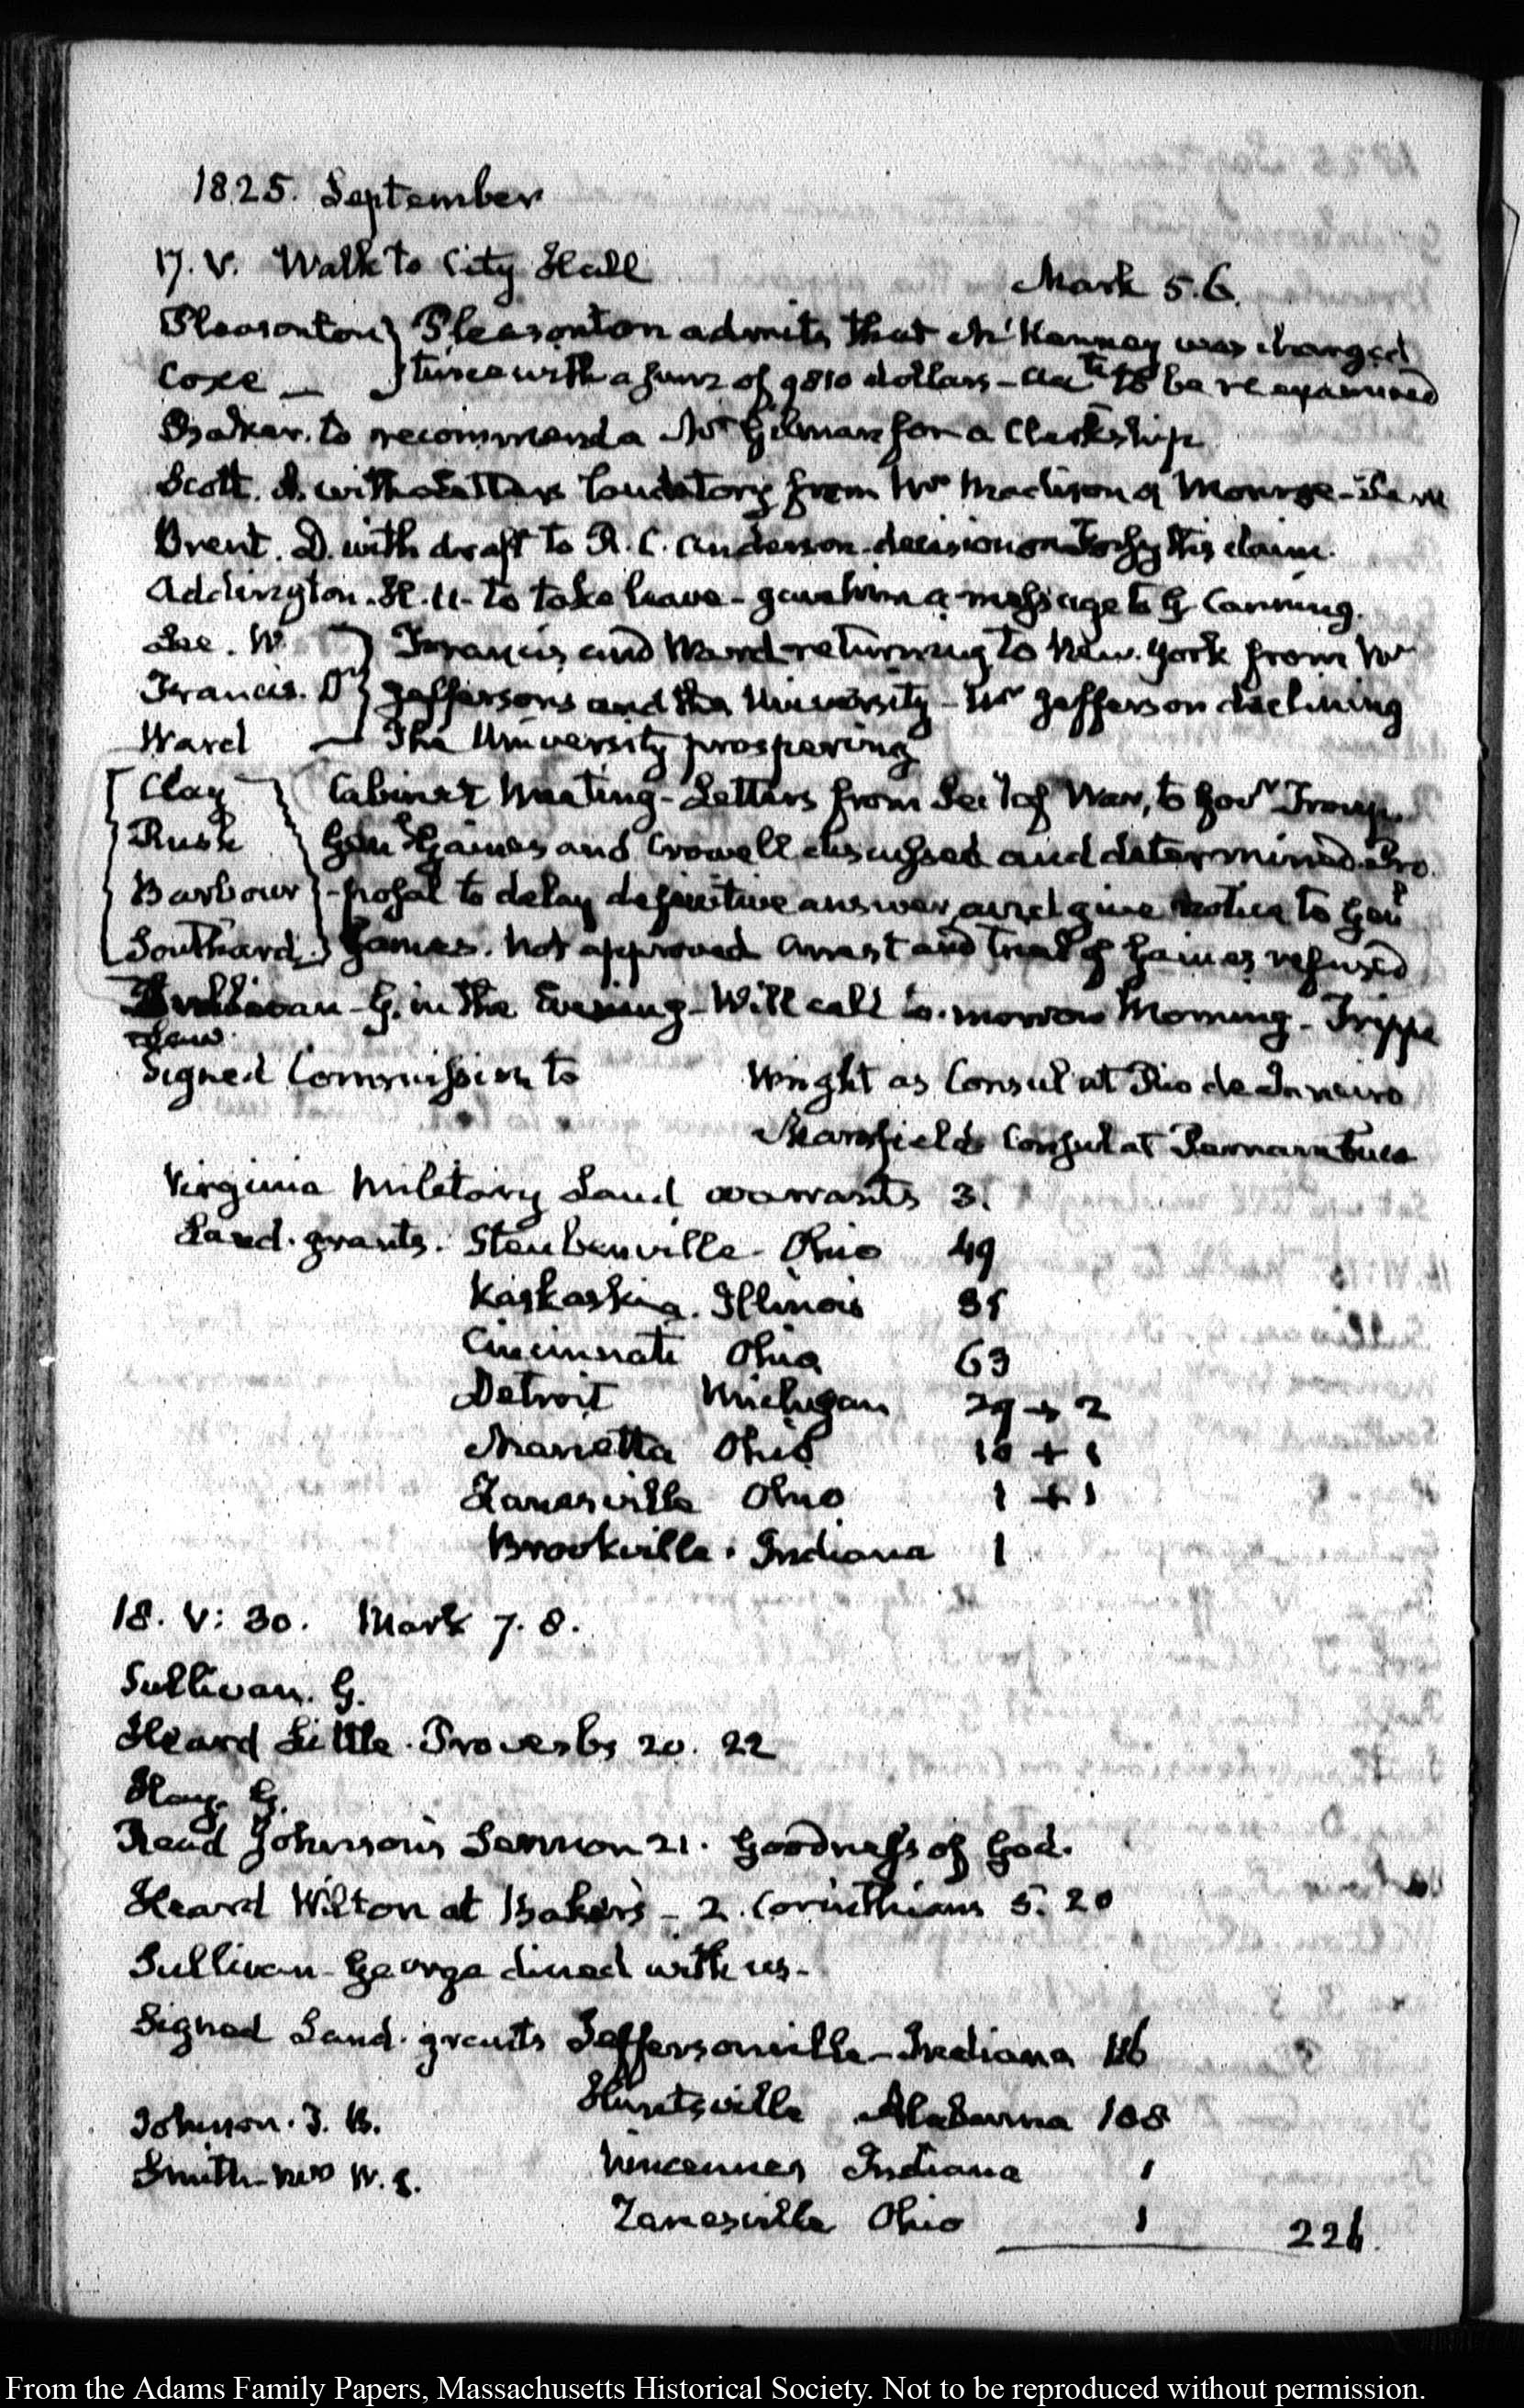 1825. September
17. V. Walk to City Hall
Mark 5.6.
Pleasonton } Pleasonton admits that McKenney was charged
Coxe — } twice with a sum of 9810 dollars — to be reexamined
to recommend a Mr Gilman for a Clerkship
Scott. with letters laudatory from Mrs Madison &
Brent. D. with draft to R. C. Anderson — decision on claim.
Addington. H. U. to take leave — gave him a message to G Canning.
Lee. W. } Francis and Ward returning to New-York from Mr
Francis. Dr } Jefferson's and the University — Mr Jefferson declining
Ward — The University prospering
Clay Cabinet Meeting — Letters from Secy of War, to Govr Troup
Rush Genl Gaines and Crowell discussed and determined. Pro-
Barbour -posal to delay definitive answer, and give notice to Genl
Southard. Gaines. not approved arrest and trial of Gaines refused
Sullivan — G. in the Evening — Will call to-morrow Morning — Trippe
Law.
Signed Commission to Wright as Consul at Rio de Janeiro
Mansfield Consul at
Virginia Military Land warrants 3.
Land-grants. Steubenville — Ohio 49
Kaskaskia. Illinois
Cincinnati Ohio 63
Detroit Michigan 29 + 2
Marietta Ohio 10 + 1
Zanesville Ohio 1 + 1
Brookville. Indiana 1
18. V: 30. Mark 7. 8.
Sullivan. G.
Heard Little. Proverbs 20. 22
Hay. G.
Read Johnson's Sermon 21. Goodness of God.
Heard Wilton at Baker's — 2. Corinthians 5. 20
Sullivan — George dined with us —
Signed Land-grants Jeffersonville — Indiana 116
Huntsville Alabama 108
Johnson. J. B.
Vincennes Indiana 1
Smith — Mrs W. S.
Zanesville Ohio 1 226.
From the Adams Family Papers, Massachusetts Historical Society. Not to be reproduced without permission.